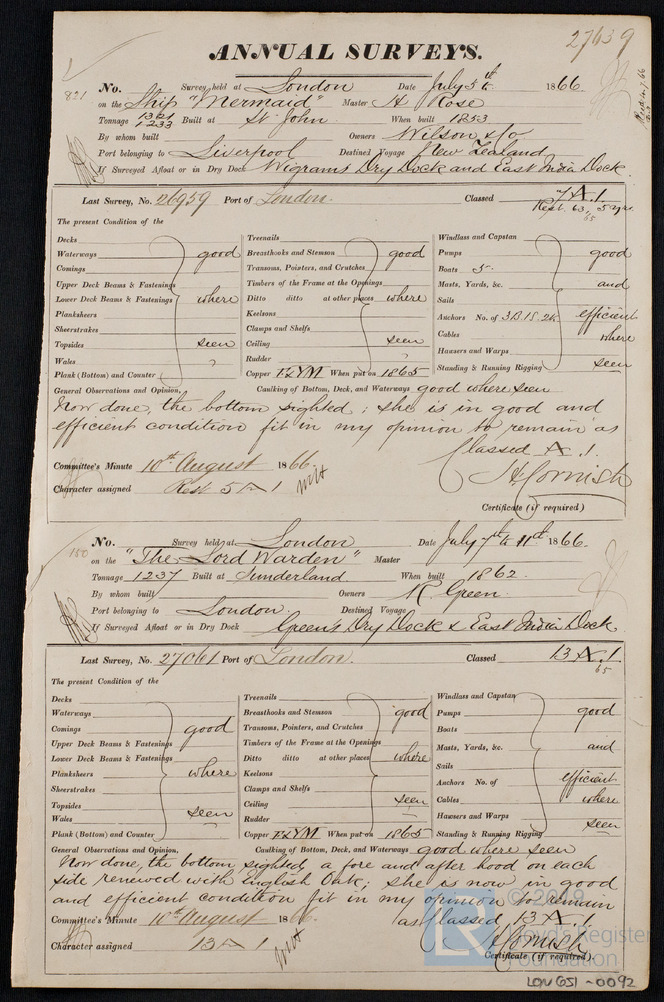 27639
ANNUAL SURVEYS.
821
No. Survey held at London Date July 5th 1866
on the Ship "Mermaid" Master H Rose
Tonnage 1321 1233 Built at St John When built 1853
By whom built Owners Wilson & Co
Port belonging to Liverpool Destined Voyage New Zealand
If Surveyed Afloat or in Dry Dock Wigrams Dry Dock and East India Dock
Last Survey, No. 26959 Port of London Classed 7 A.1.
Rest. 63, 5 yrs.
65
The present Condition of the
Decks
Waterways good
Comings
Upper Deck Beams & Fastenings
Lower Deck Beams & Fastenings where
Planksheers
Sheerstrakes
Topsides seen
Wales
Plank (Bottom) and Counter
Treenails
Breasthooks and Stemson good
Transoms, Pointers, and Crutches
Timbers of the Frame at the Openings
Ditto ditto at other places where
Keelsons
Clamps and Shelfs
Ceiling seen
Rudder
Copper F&YM When put on 1865
Windlass and Capstan
Pumps good
Boats 5.
Masts, Yards, &c. and
Sails
Anchors No. of 3B 1S 2K efficient
Cables where
Hawsers and Warps
Standing & Running Rigging seen
General Observations and Opinion, Caulking of Bottom, Deck, and Waterways good where seen
Now done, the bottom sighted; she is in good and
efficient condition fit in my opinion to remain as
Classed A.1.
Committee's Minute 10th August 1866
H Cornish
Character assigned Rest 5 A 1
Certificate (if required)
150
No. Survey held at London Date July 7th to 11th 1866.
on the "The Lord Warden" Master
Tonnage 1237 Built at Sunderland When built 1862.
By whom built Owners R Green.
Port belonging to London. Destined Voyage
If Surveyed Afloat or in Dry Dock Green's Dry Dock & East India Dock
Last Survey, No. 27061 Port of London. Classed 13 A.1
65
The present Condition of the
Decks
Waterways
Comings good
Upper Deck Beams & Fastenings
Lower Deck Beams & Fastenings
Planksheers where
Sheerstrakes
Topsides
Wales seen
Plank (Bottom) and Counter
Treenails
Breasthooks and Stemson good
Transoms, Pointers, and Crutches
Timbers of the Frame at the Openings
Ditto ditto at other places where
Keelsons
Clamps and Shelfs
Ceiling seen
Rudder
Copper F&YM When put on 1865
Windlass and Capstan
Pumps good
Boats
Masts, Yards, &c. and
Sails
Anchors No. of efficient
Cables where
Hawsers and Warps
Standing & Running Rigging seen
General Observations and Opinion, Caulking of Bottom, Deck, and Waterways good where seen
Now done, the bottom sighted, a fore and after hood on each
side renewed with English Oak; she is now in good
and efficient condition fit in my opinion to remain
Committee's Minute 10th August 1866. as Classed 13 A.1.
H Cornish
Character assigned 13 A 1
Certificate (if required).
© 2019
Lloyd's Register
Foundation
LR
LON651-0092